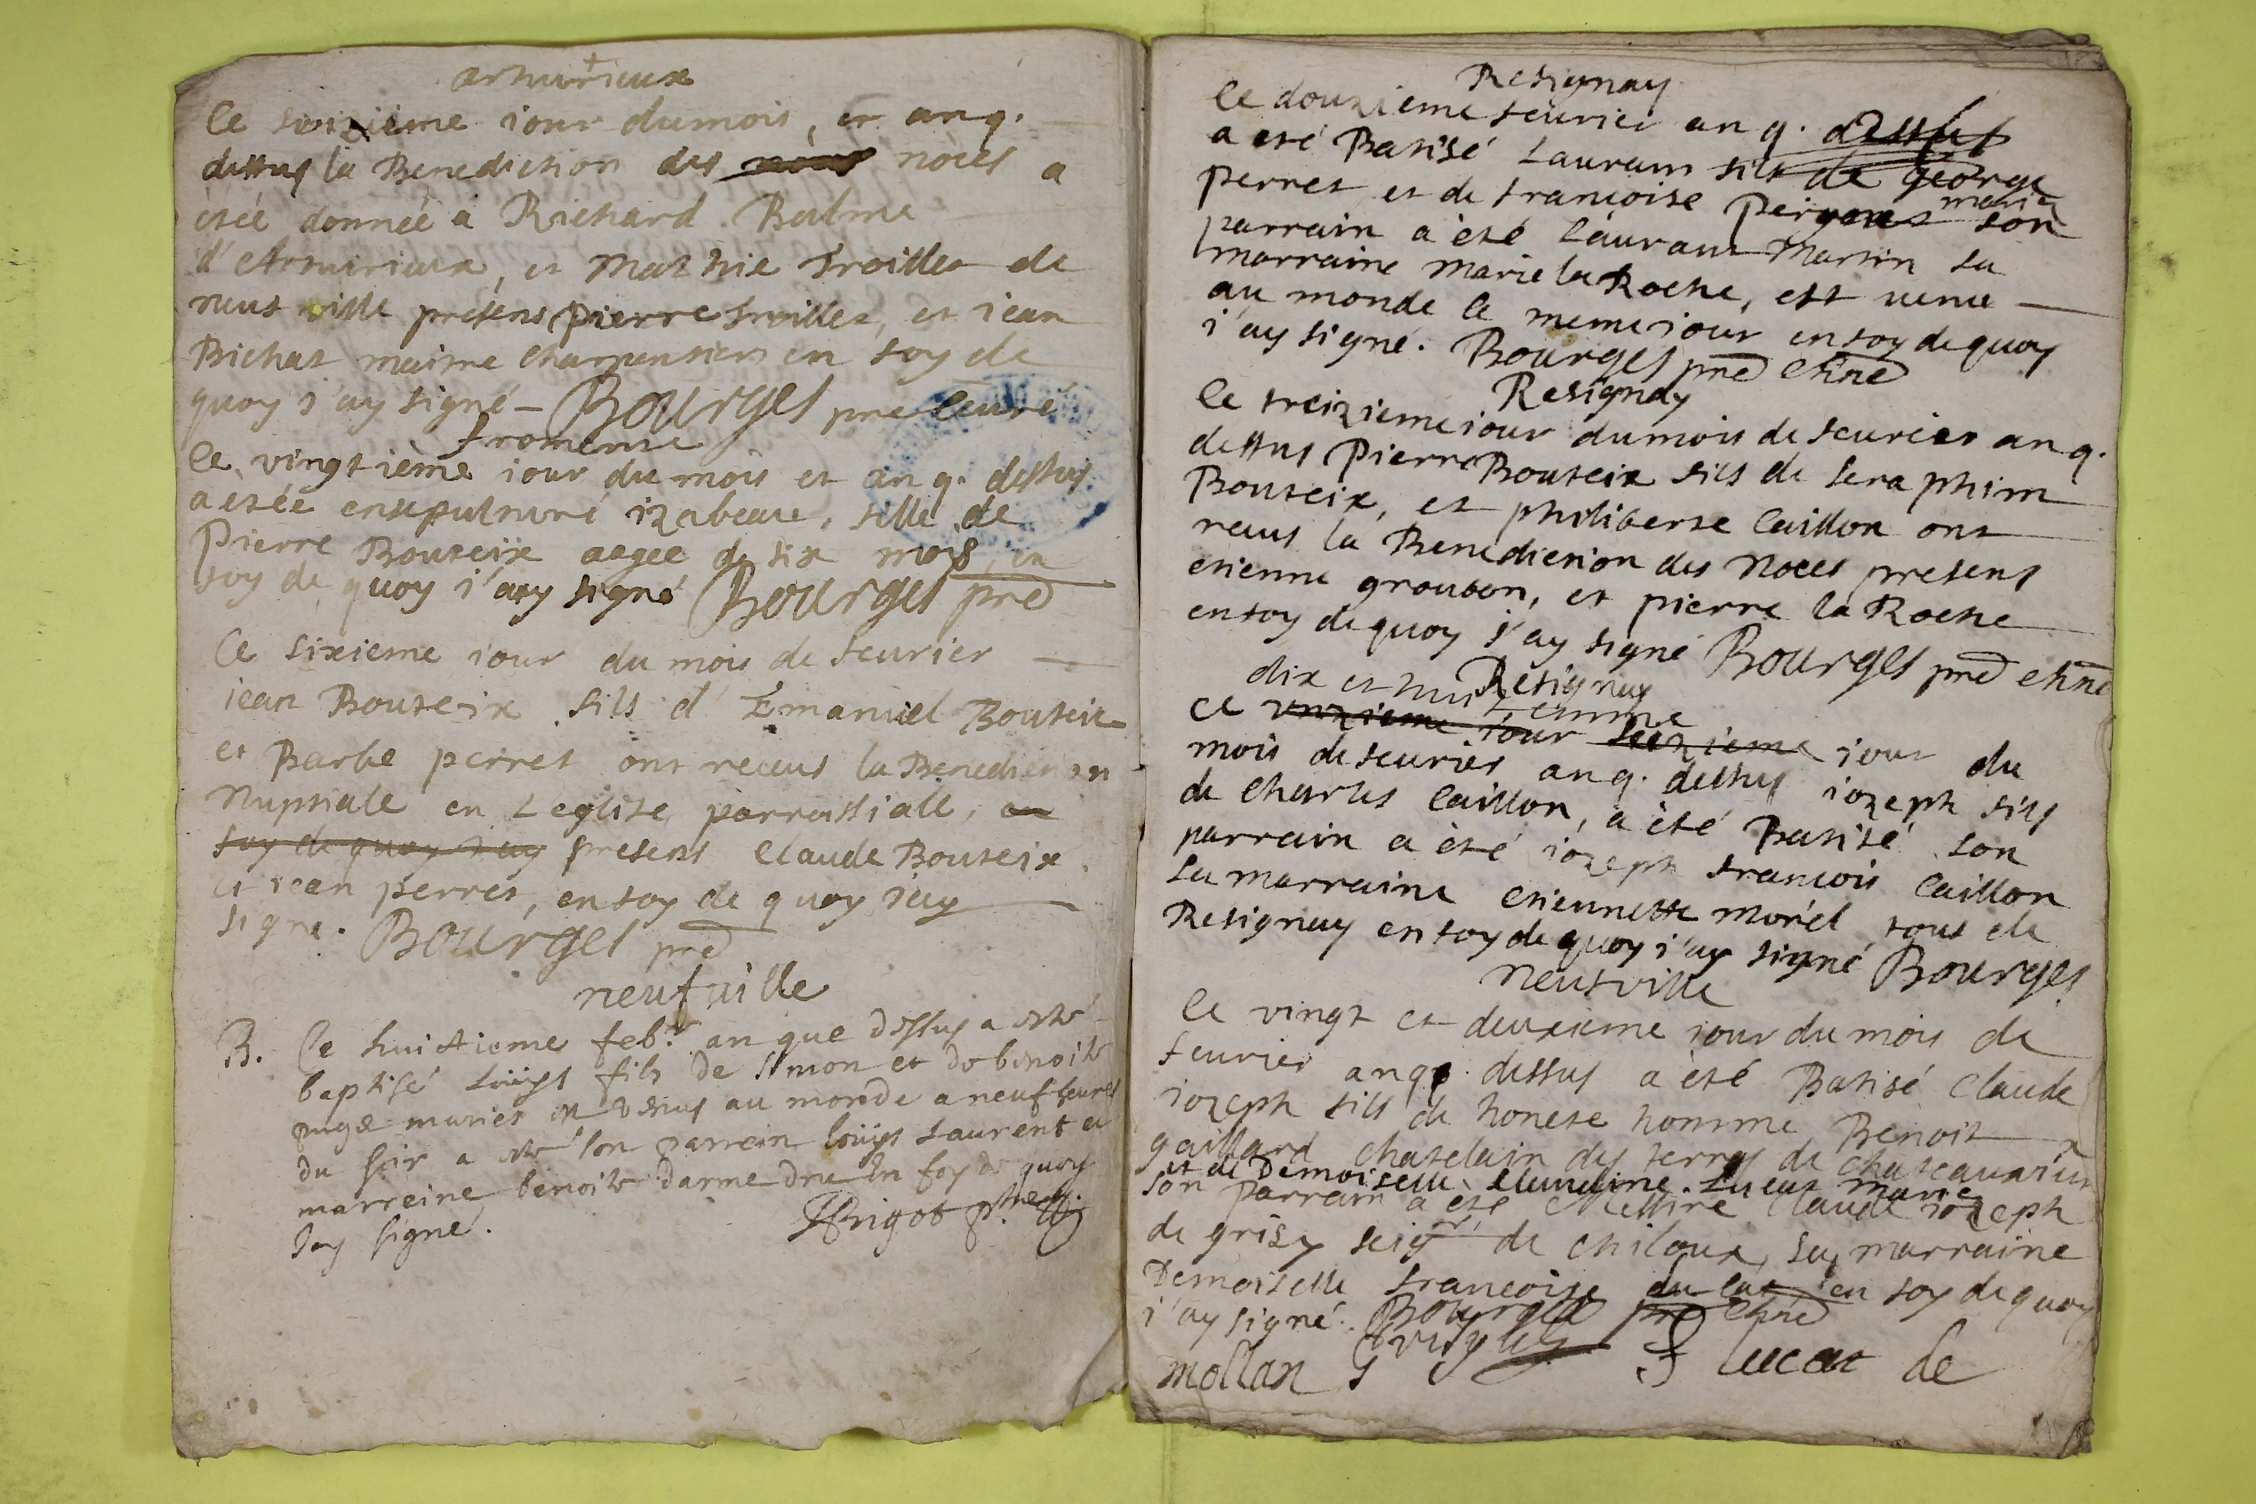 arnurieux
Ce seizième iour dumois, et an q.
dessus la Benediction des nôces a
etée donnée a Richard Balme
d'Arnurieux, et Mathie Troillet de
neuf ville présens pierre troillet, et iean
Bichat maitre charpentiers en foy de
quoy i'ay signé – Bourges pre Cevré
fromente
Ce vingtième iour du mois et an q. dessus
a etée ensepulturé izabeau, fille de
Pierre Bouteix aegee de six mois, en
foy de quoy i'ay signé Bourges pre
Ce sixieme iour du mois de feurier
iean Bouteix fils d'Emanuel Bouteix
et Barbe perret ont receus la Benediction
Nuptiale en L'eglise parrassiale, en
foy de quoy i'ay presens Claude Bouteix
et iean perret, en foy de quoy i'ay
signé. Bourges pre
neufuille
B. Ce huictieme feb.r an que dessus a esté
baptisé Loüys fils de Simon et de benoite
puge mariés est venus au monde a neuf heures
du soir a esté son parrein loüys Laurent et
marreine benoite darmedru En foy de quoy
Jay signé. JBrigot
Resignay
Ce douzieme feurier an q. dessus
a eté Batisé Lauram fils de george
perret et de francoise marie son
parrain a èté Lauram Martin sa
marraine marie la Roche, est venu
au monde le meme iour en foy de quoy
i'ay signé. Bourges pre
Resignay
Ce treizieme iour dumois de feurier an q.
dessus Pierre Bouteix fils de Seraphim
Bouteix, et philiberte Caillon ont
receus la Benediction des Noces presens
etienne grouson, et pierre la Roche
en foy de quoy i'ay signé Bourges pre
Resignay
dix et huit
Ce unzieme iour seizieme iour du
mois de feurier an q. dessus iozeph fils
de Charles Caillon, a èté Batisé son
parrain a èté iozeph francois Caillon
sa marraine etiennette Morel tous de
Resignay en foy de quoy i'ay signé Bourges
Neufville
Ce vingt et deuxieme iour du mois de
feurier an q. dessus a èté Batisé Claude
iozeph fils de honete homme Benoit
gaillard chatelain des terres de chateauvieux
et de Demoiselle Claudine Lucat marie
son parrain a èté Messire Claude iozeph
de grisy seig.r de chiloux, sa marraine
Demoiselle francoise du lat en foy de quoy
i'ay signé. Bourges pre
mollan F Lucat de